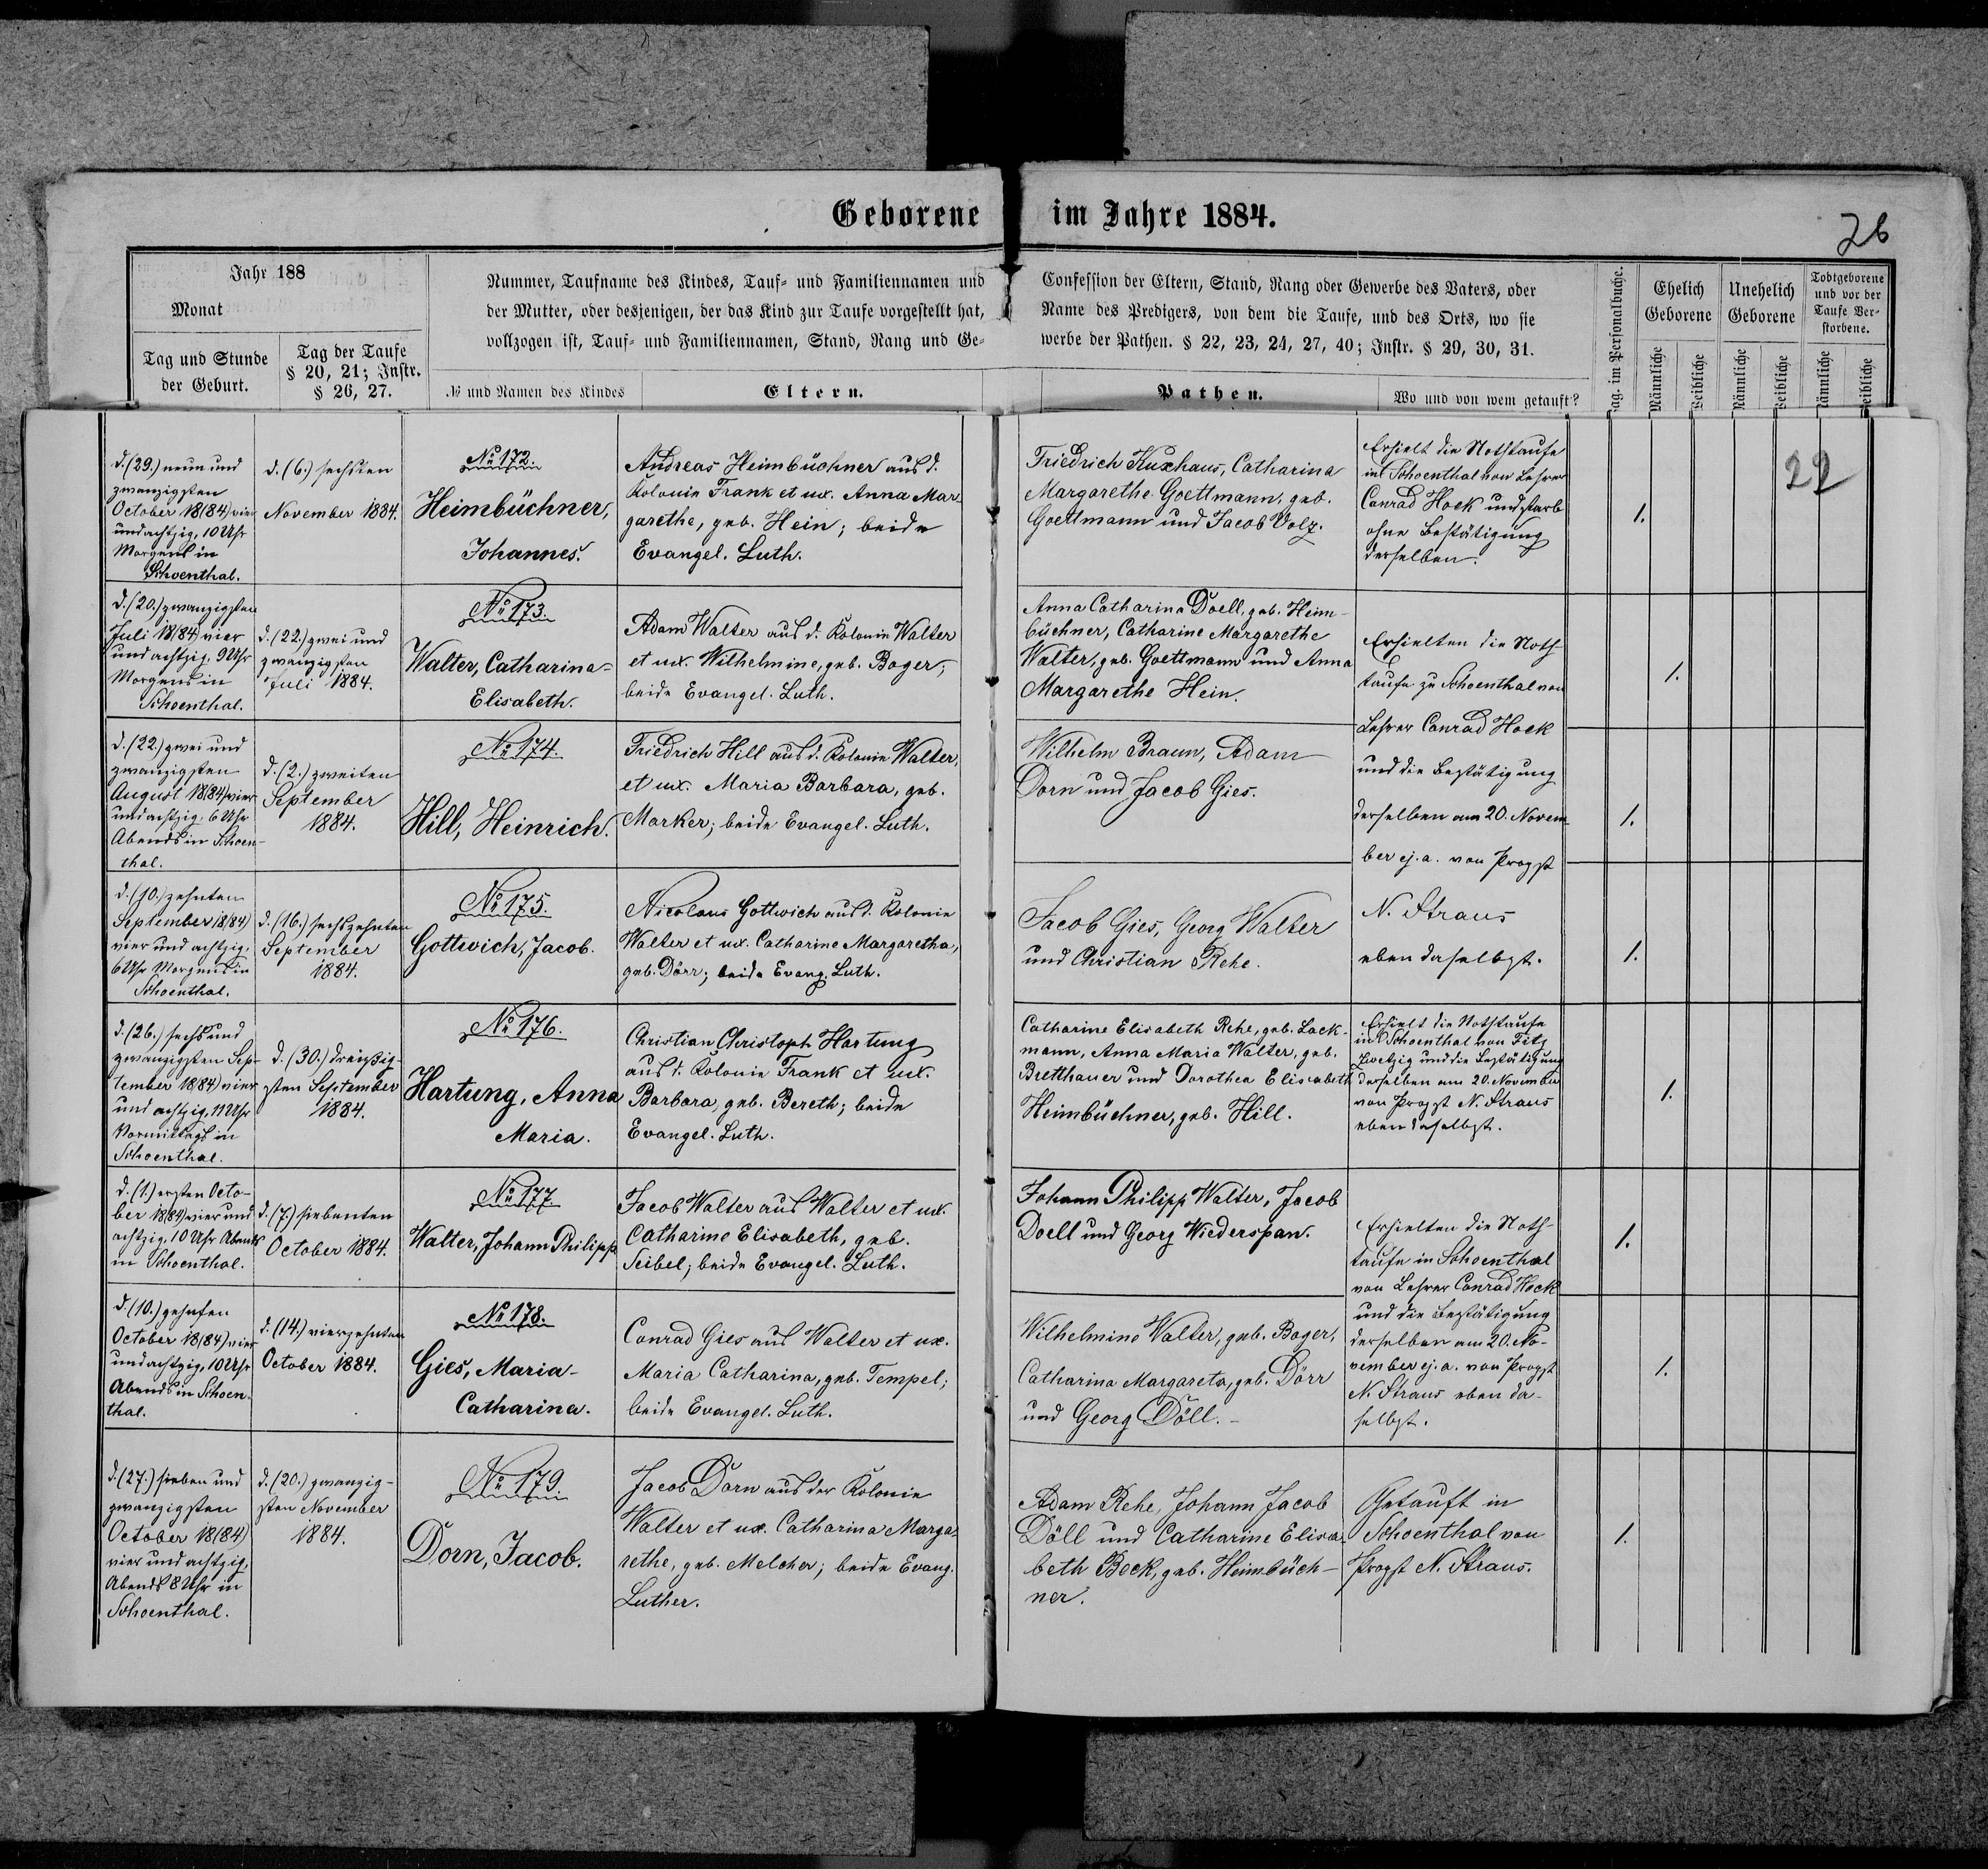 Geborene im Jahre 1884.
26
Jahr 188
Monat
Tag und Stunde
der Geburt.
Tag der Taufe
§ 20, 21; Instr.
§ 26, 27.
Nummer, Taufname des Kindes, Tauf- und Familiennamen und
der Mutter, oder desjenigen, der das Kind zur Taufe vorgestellt hat,
vollzogen ist, Tauf- und Familiennamen, Stand, Rang und Ge-
№ und Namen des Kindes
Eltern.
Confession der Eltern, Stand, Rang oder Gewerbe des Vaters, oder
Name des Predigers, von dem die Taufe, und des Orts, wo sie
werbe der Pathen. § 22, 23, 24, 27, 40; Instr. § 29, 30, 31.
Pathen.
Wo und von wem getauft?
Pag. im Personalbuche.
Ehelich
Geborene
Unehelich
Geborene
Todtgeborene
und vor der
Taufe Ver-
storbene.
Männliche
Weibliche
Männliche
Weibliche
Männliche
Weibliche
22
d. (29.) neun und
zwanzigsten
October 18(84) vier
und achtzig, 10 Uhr
Morgens in
Schoenthal.
d. (6.) sechsten
November 1884.
№ 172.
Heimbüchner,
Johannes.
Andreas Heimbüchner aus d.
Kolonie Frank et ux. Anna Mar-
garethe, geb. Hein; beide
Evangel. Luth.
Friedrich Kuxhaus, Catharina
Margarethe Goettmann, geb.
Goettmann und Jacob Volz.
Erhielt die Nothtaufe
in Schoenthal von Lehrer
Conrad Hock und starb
ohne Bestätigung
derselben.
1.
d. (20.) zwanzigsten
Juli 18(84) vier
und achtzig, 9 Uhr
Morgens in
Schoenthal.
d. (22.) zwei und
zwanzigsten
Juli 1884.
№ 173.
Walter, Catharina-
Elisabeth.
Adam Walter aus d. Kolonie Walter
et ux. Wilhelmine, geb. Boger;
beide Evangel. Luth.
Anna Catharina Doell, geb. Heim-
büchner, Catharine Margarethe
Walter, geb. Goettmann und Anna
Margarethe Hein.
Erhielten die Noth-
taufe zu Schoenthal von
Lehrer Conrad Hock
und die Bestätigung
derselben am 20. Novem-
ber ej. a. von Propst
N. Straus
eben daselbst.
1.
d. (22.) zwei und
zwanzigsten
August 18(84) vier
und achtzig, 6 Uhr
Abends in Schoen-
thal.
d. (2.) zweiten
September
1884.
№ 174.
Hill, Heinrich.
Friedrich Hill aus d. Kolonie Walter,
et ux. Maria Barbara, geb.
Marker; beide Evangel. Luth.
Wilhelm Braun, Adam
Dorn und Jacob Gies.
1.
d. (10.) zehnten
September 18(84)
vier und achtzig,
6 Uhr Morgens in
Schoenthal.
d. (16.) sechzehnten
September
1884.
№ 175.
Gottwich, Jacob.
Nicolaus Gottwich aus d. Kolonie
Walter et ux. Catharine Margaretha,
geb. Dörr; beide Evang. Luth.
Jacob Gies, Georg Walter
und Christian Rehe.
1.
d. (26.) sechs und
zwanzigsten Sep-
tember 18(84) vier
und achtzig, 11 Uhr
Vormittags in
Schoenthal.
d. (30.) dreißig-
sten September
1884.
№ 176.
Hartung, Anna
Maria.
Christian Christoph Hartung
aus d. Kolonie Frank et ux.
Barbara, geb. Bereth; beide
Evangel. Luth.
Catharine Elisabeth Rehe, geb. Lack-
mann, Anna Maria Walter, geb.
Bretthauer und Dorothea Elisabeth
Heimbüchner, geb. Hill.
Erhielt die Nothtaufe
in Schoenthal von
und die Bestätigung
derselben am 20. November
von Propst N. Straus
eben daselbst.
1.
d. (1.) ersten Octo-
ber 18(84) vier und
achtzig, 10 Uhr Abends
in Schoenthal.
d. (7.) siebenten
October 1884.
№ 177.
Walter, Johann Philipp
Jacob Walter aus Walter et ux.
Catharine Elisabeth, geb.
Seibel; beide Evangel. Luth.
Johann Philipp Walter, Jacob
Doell und Georg Wiederspan.
Erhielten die Noth-
taufe in Schoenthal
von Lehrer Conrad Hock
und die Bestätigung
derselben am 20. No-
vember ej. a. von Propst
N. Straus eben da-
selbst.
1.
d. (10.) zehnten
October 18(84) vier
und achtzig, 10 Uhr
Abends in Schoen-
thal.
d. (14.) vierzehnten
October 1884.
№ 178.
Gies, Maria-
Catharina.
Conrad Gies aus Walter et ux.
Maria Catharina, geb. Tempel;
beide Evangel. Luth.
Wilhelmine Walter, geb. Boger,
Catharina Margareta, geb. Dörr
und Georg Döll.
1.
d. (27.) sieben und
zwanzigsten
October 18(84)
vier und achtzig,
Abends 8 Uhr in
Schoenthal.
d. (20.) zwanzig-
sten November
1884.
№ 179.
Dorn, Jacob.
Jacob Dorn aus der Kolonie
Walter et ux. Catharina Marga-
rethe, geb. Melcher; beide Evang.
Luther.
Adam Rehe, Johann Jacob
Döll und Catharine Elisa-
beth Bock, geb. Heimbüch-
ner.
Getauft in
Schoenthal von
Propst N. Straus.
1.